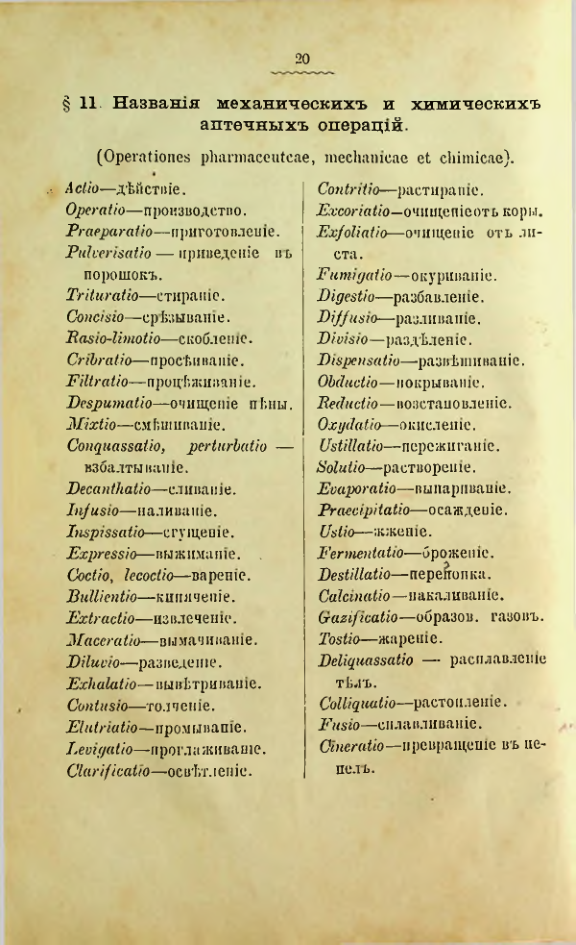 20
§ 11. Названія механическихъ и химическихъ
аптечныхъ операцій.
(Operationes pharmaceutcae, mechanicae et chimicae).
Actio—дѣйствіе.
Operatio—производство.
Praeparatio—приготовленіе.
Pulverisatio — приведеніе въ
порошокъ.
Trituratio—стираніе.
Concisio—срѣзываніе.
Rasio-limotio—скобленіе.
Cribratio—просѣиваніе.
Filtratio—процѣживаніе.
Despumatio—очищеніе пѣны.
Mixtio—смѣшиваніе.
Conquassatio, perturbatio —
взбалтываніе.
Decanthatio—сливаніе.
Infusio—наливаніе.
Inspissatio—сгущеніе.
Expressio—выжиманіе.
Coctio, lecoctio—вареніе.
Bullientio—кипяченіе.
Extractio—извлеченіе.
Maceratio—вымачиваніе.
Diluvio—разведеніе.
Exhalatio—вывѣтриваніе.
Contusio—толченіе.
Elutriatio—промываніе.
Levigatio—проглаживаніе.
Clarificatio—освѣтленіе.
Contritio—растираніе.
Excoriatio—очищеніе отъ коры.
Exfoliatio—очищеніе отъ ли-
ста.
Fumigatio—окуриваніе.
Digestio—разбавленіе.
Diffusio—разливаніе.
Divisio—раздѣленіе.
Dispensatio—развѣшиваніе.
Obductio—покрываніе.
Reductio—возстановленіе.
Oxydatio—окисленіе.
Ustillatio—пережиганіе.
Solutio—раствореніе.
Evaporatio—выпариваніе.
Praecipitatio—осажденіе.
Ustio—жженіе.
Fermentatio—броженіе.
Destillatio—перегонка.
Calcinatio—накаливаніе.
Gazificatio—образов. газовъ.
Tostio—жареніе.
Deliquassatio — расплавленіе
тѣлъ.
Colliquatio—растопленіе.
Fusio—сплавливаніе.
Cineratio—превращеніе въ пе-
пелъ.